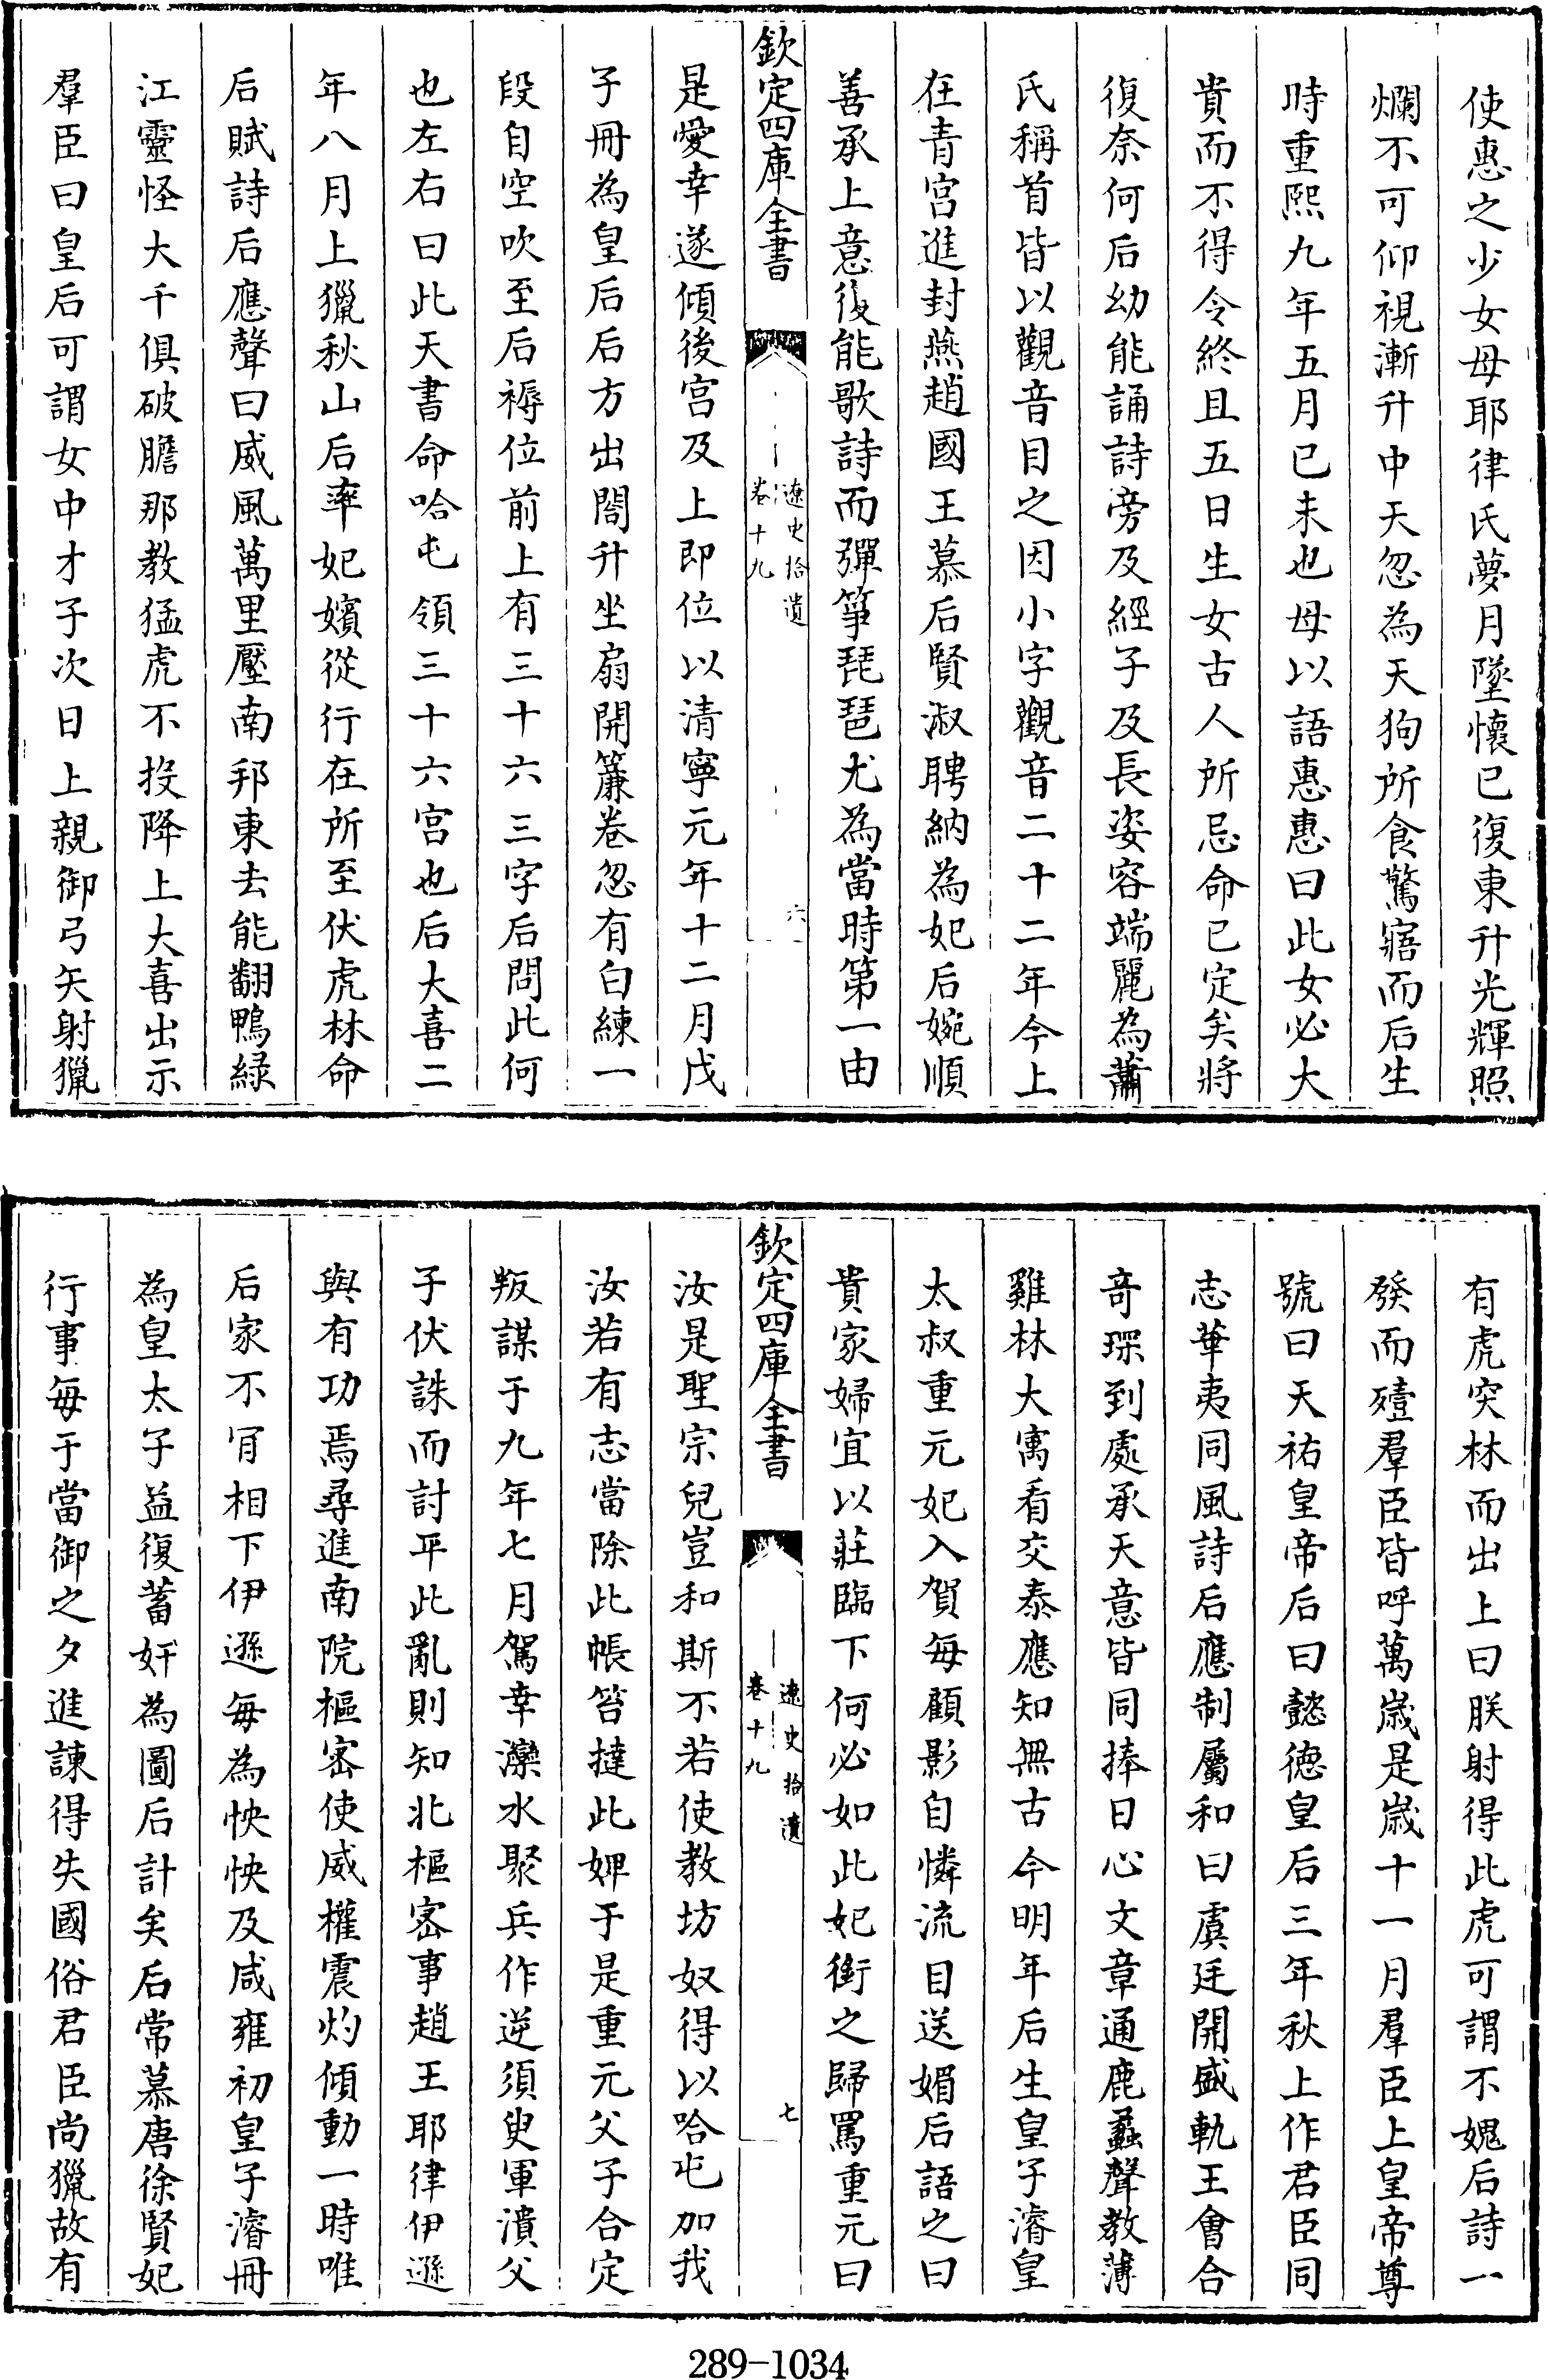 使惠之少女母耶律氏夢月墜懷已復東升光輝照
爛不可仰視漸升中天忽為天狗所食驚寤而后生
時重熙九年五月已未也母以語惠惠曰此女必大
貴而不得令終且五日生女古人所忌命已定矣將
復奈何后幼能誦詩旁及經子及長姿容端麗為蕭
氏稱首皆以觀音目之因小字觀音二十二年今上
在青宮進封燕趙國王慕后賢淑聘納為妃后婉順
善承上意復能歌詩而彈箏琵琶尤為當時第一由
欽定四庫全書
遼史拾遺
卷十九
六
是愛幸遂傾後宮及上即位以清寧元年十二月戊
子冊為皇后后方出閤升坐扇開簾卷忽有白練一
段自空吹至后褥位前上有三十六三字后問此何
也左右曰此天書命哈屯領三十六宮也后大喜二
年八月上獵秋山后率妃嬪從行在所至伏虎林命
后賦詩后應聲曰威風萬里壓南邦東去能翻鴨綠
江靈怪大千俱破膽那教猛虎不投降上大喜出示
羣臣曰皇后可謂女中才子次日上親御弓矢射獵
有虎突林而出上曰朕射得此虎可謂不媿后詩一
發而殪羣臣皆呼萬歲是歲十一月羣臣上皇帝尊
號曰天祐皇帝后曰懿德皇后三年秋上作君臣同
志華夷同風詩后應制屬和曰虞廷開盛軌王會合
奇琛到處承天意皆同捧日心文章通鹿蠡聲教薄
雞林大㝢看交泰應知無古今明年后生皇子濬皇
太叔重元妃入賀每顧影自憐流目送媚后語之曰
貴家婦宜以莊臨下何必如此妃銜之歸罵重元曰
欽定四庫全書
遼史拾遺
卷十九
七
汝是聖宗兒豈和斯不若使教坊奴得以哈屯加我
汝若有志當除此帳笞撻此婢于是重元父子合定
叛謀于九年七月駕幸灤水聚兵作逆須臾軍潰父
子伏誅而討平此亂則知北樞密事趙王耶律伊遜
與有功焉尋進南院樞密使威權震灼傾動一時唯
后家不肎相下伊遜每為怏怏及咸雍初皇子濬冊
為皇太子益復蓄奸為圖后計矣后常慕唐徐賢妃
行事每于當御之夕進諫得失國俗君臣尚獵故有
289-1034